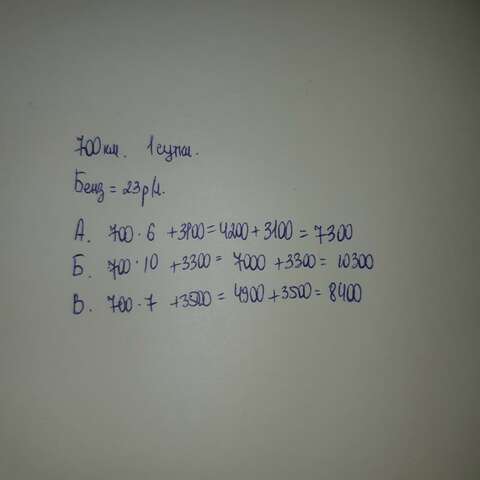 700 км. 1 сутки.
Бенз = 23 р/л.
А. 700 · 6 + 3100 = 4200 + 3100 = 7300
Б. 700 · 10 + 3300 = 7000 + 3300 = 10300
В. 700 · 7 + 3500 = 4900 + 3500 = 8400